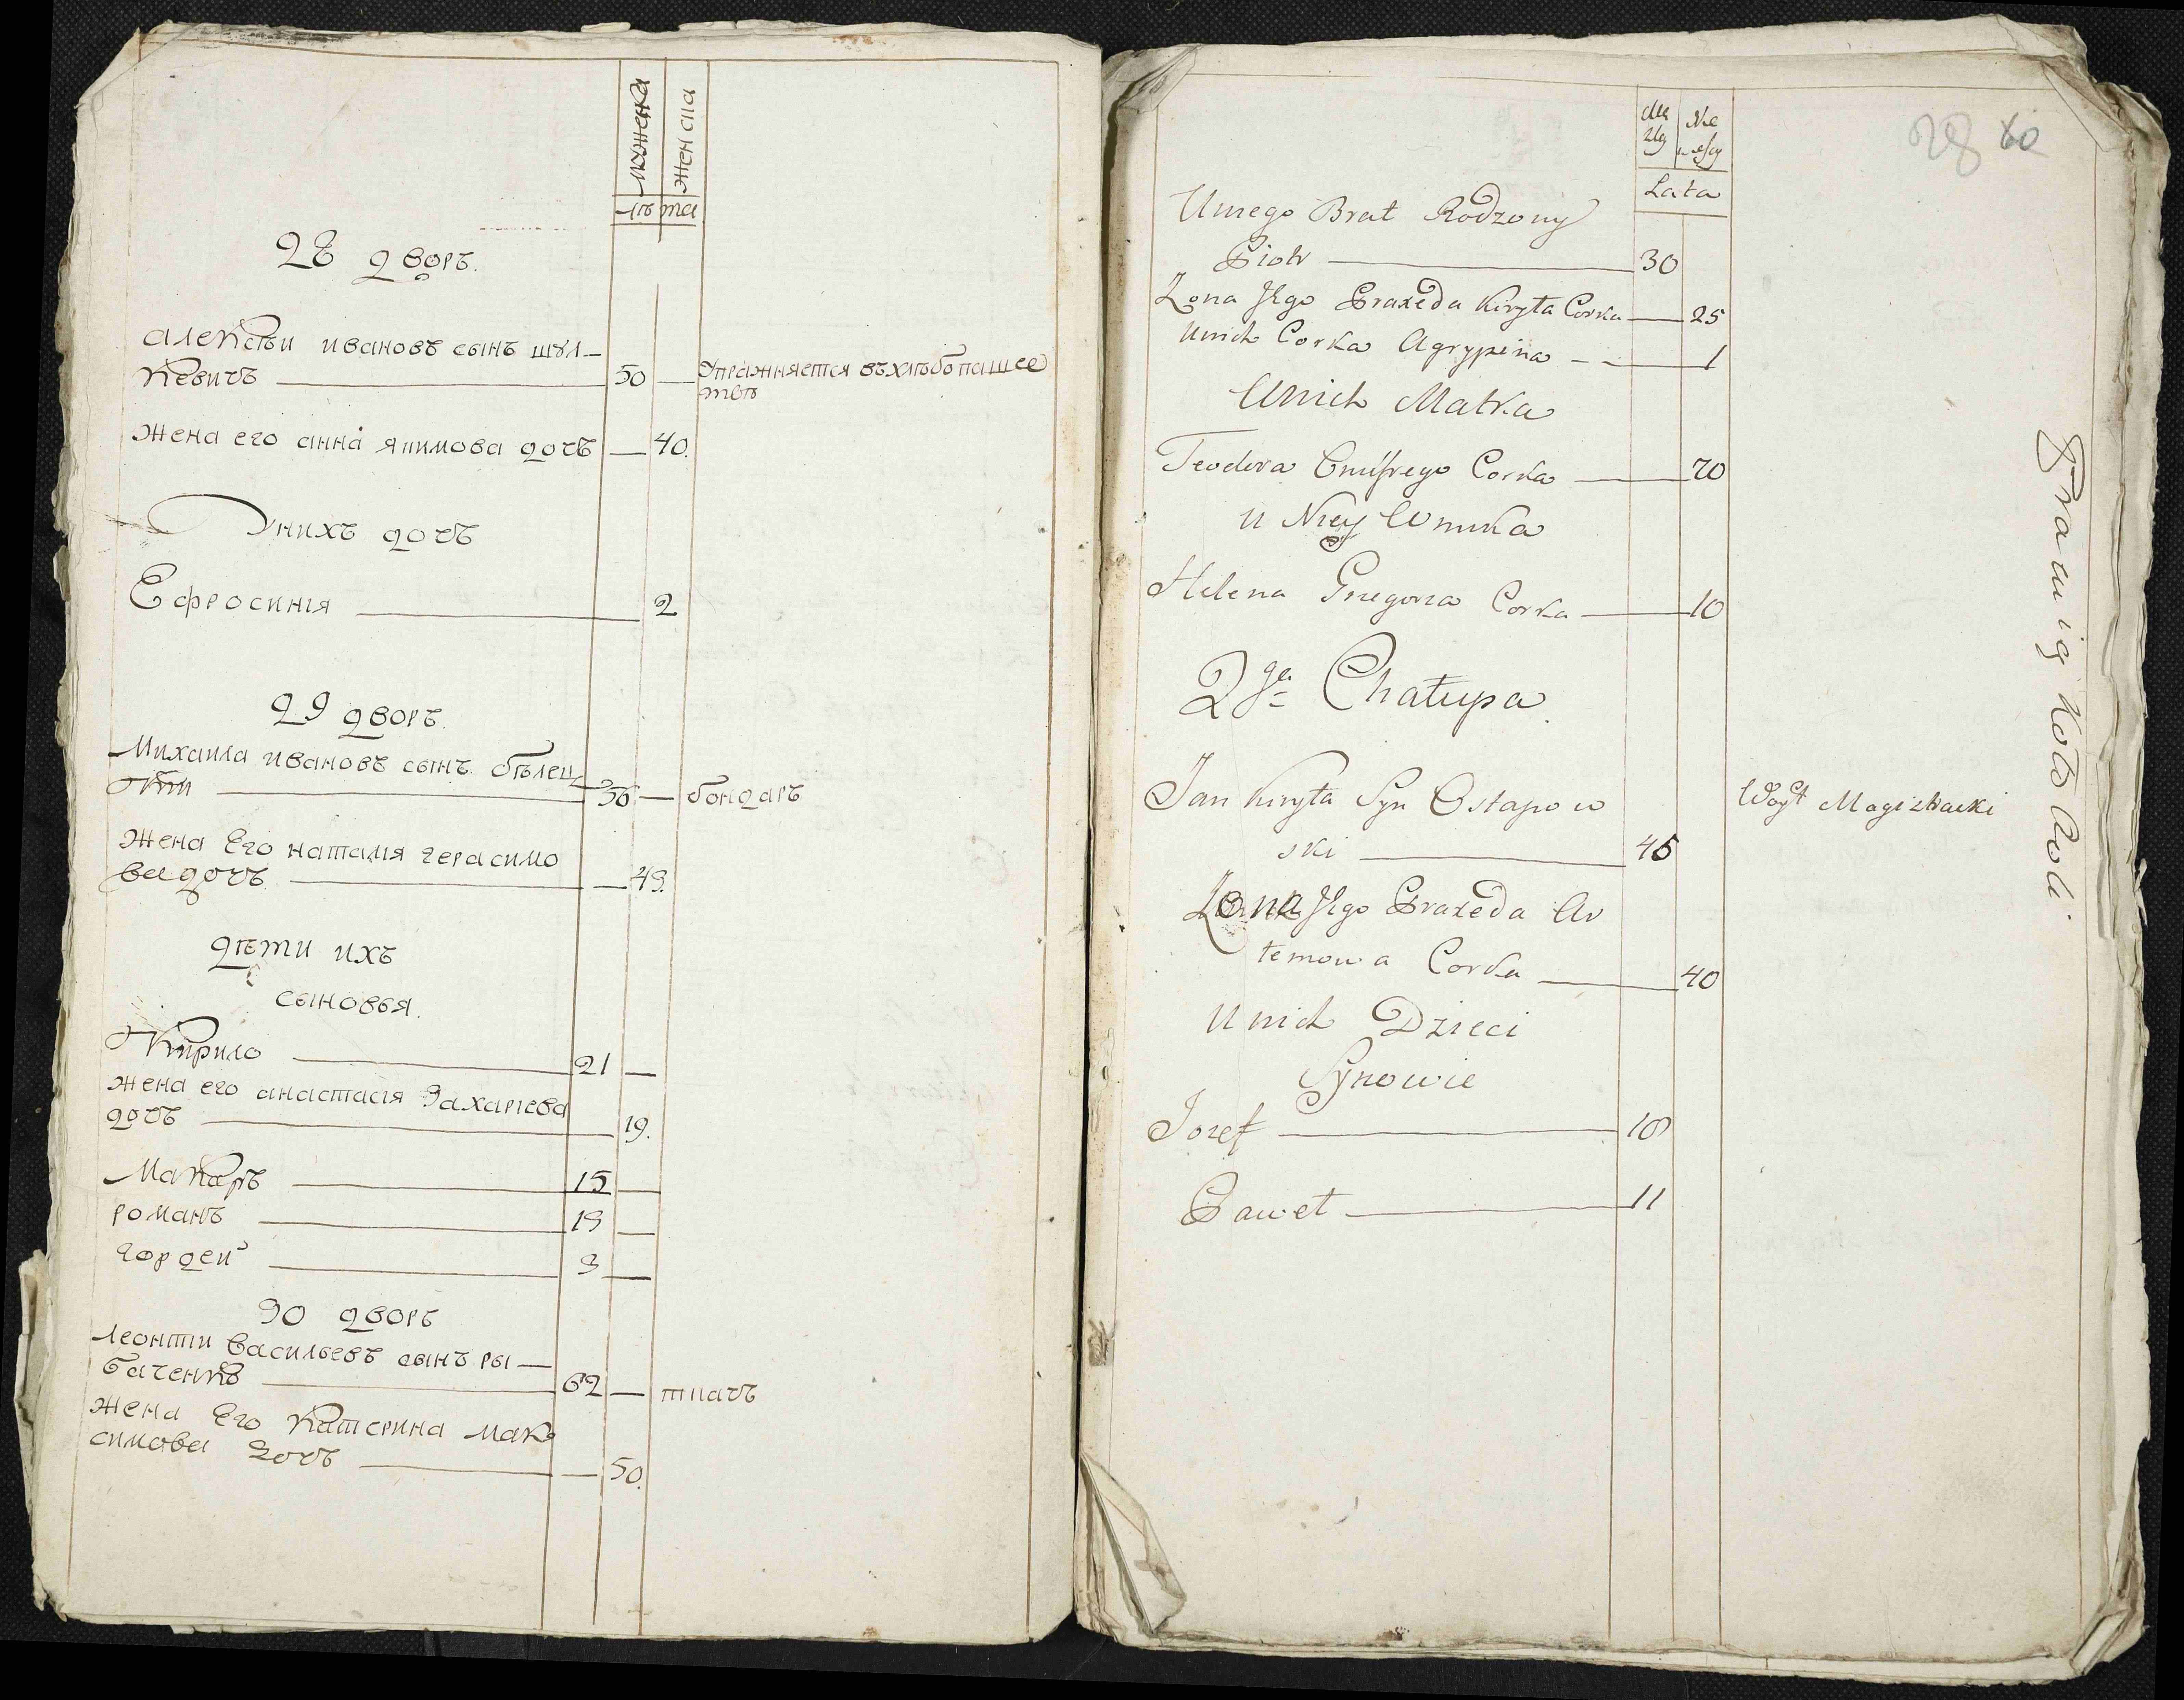 мꙋженска
женска
лѣта
28 дворъ.
алексѣи ивановъ сынъ шꙋл-
кевичъ 50 — Упражняется въхлѣбопашес
твѣ
жена его анна якимова дочъ — 40.
Унихъ дочъ
Ефросинія 2
29 дворъ.
Михаила ивановъ сынъ бѣлец
кіи 56 — бондаръ
жена Его наталия герасимо
ва дочъ — 49.
дѣти ихъ
сыновья.
Кирило 21 —
жена его анастасія Захаріева
дочъ 19.
Макаръ 15 —
романъ 13 —
гордеи 3 —
30 дворъ
леонтіи васильевъ сынъ ры-
баченко 62 — ткачъ
жена Его катерина мак
симова дочъ — 50.
28 60
Lata
Uniego Brat Rodzony
Piotr 30
Zona Jego Praxeda Kiryła Corka 25
Unich Corka Agrypina 1
Unich Matka
Teodora Onufrego Corka 70
u Niey Wnuka
Helena Gregorza Corka 10
2ga Chałupa
Jan Kiryła Syn Ostapow
ski 45
Woyt Magistracki
Zona Jego Praxeda Ar
temowa Corka 40
Unich Dzieci
Synowie
Jozef 18
Paweł 11